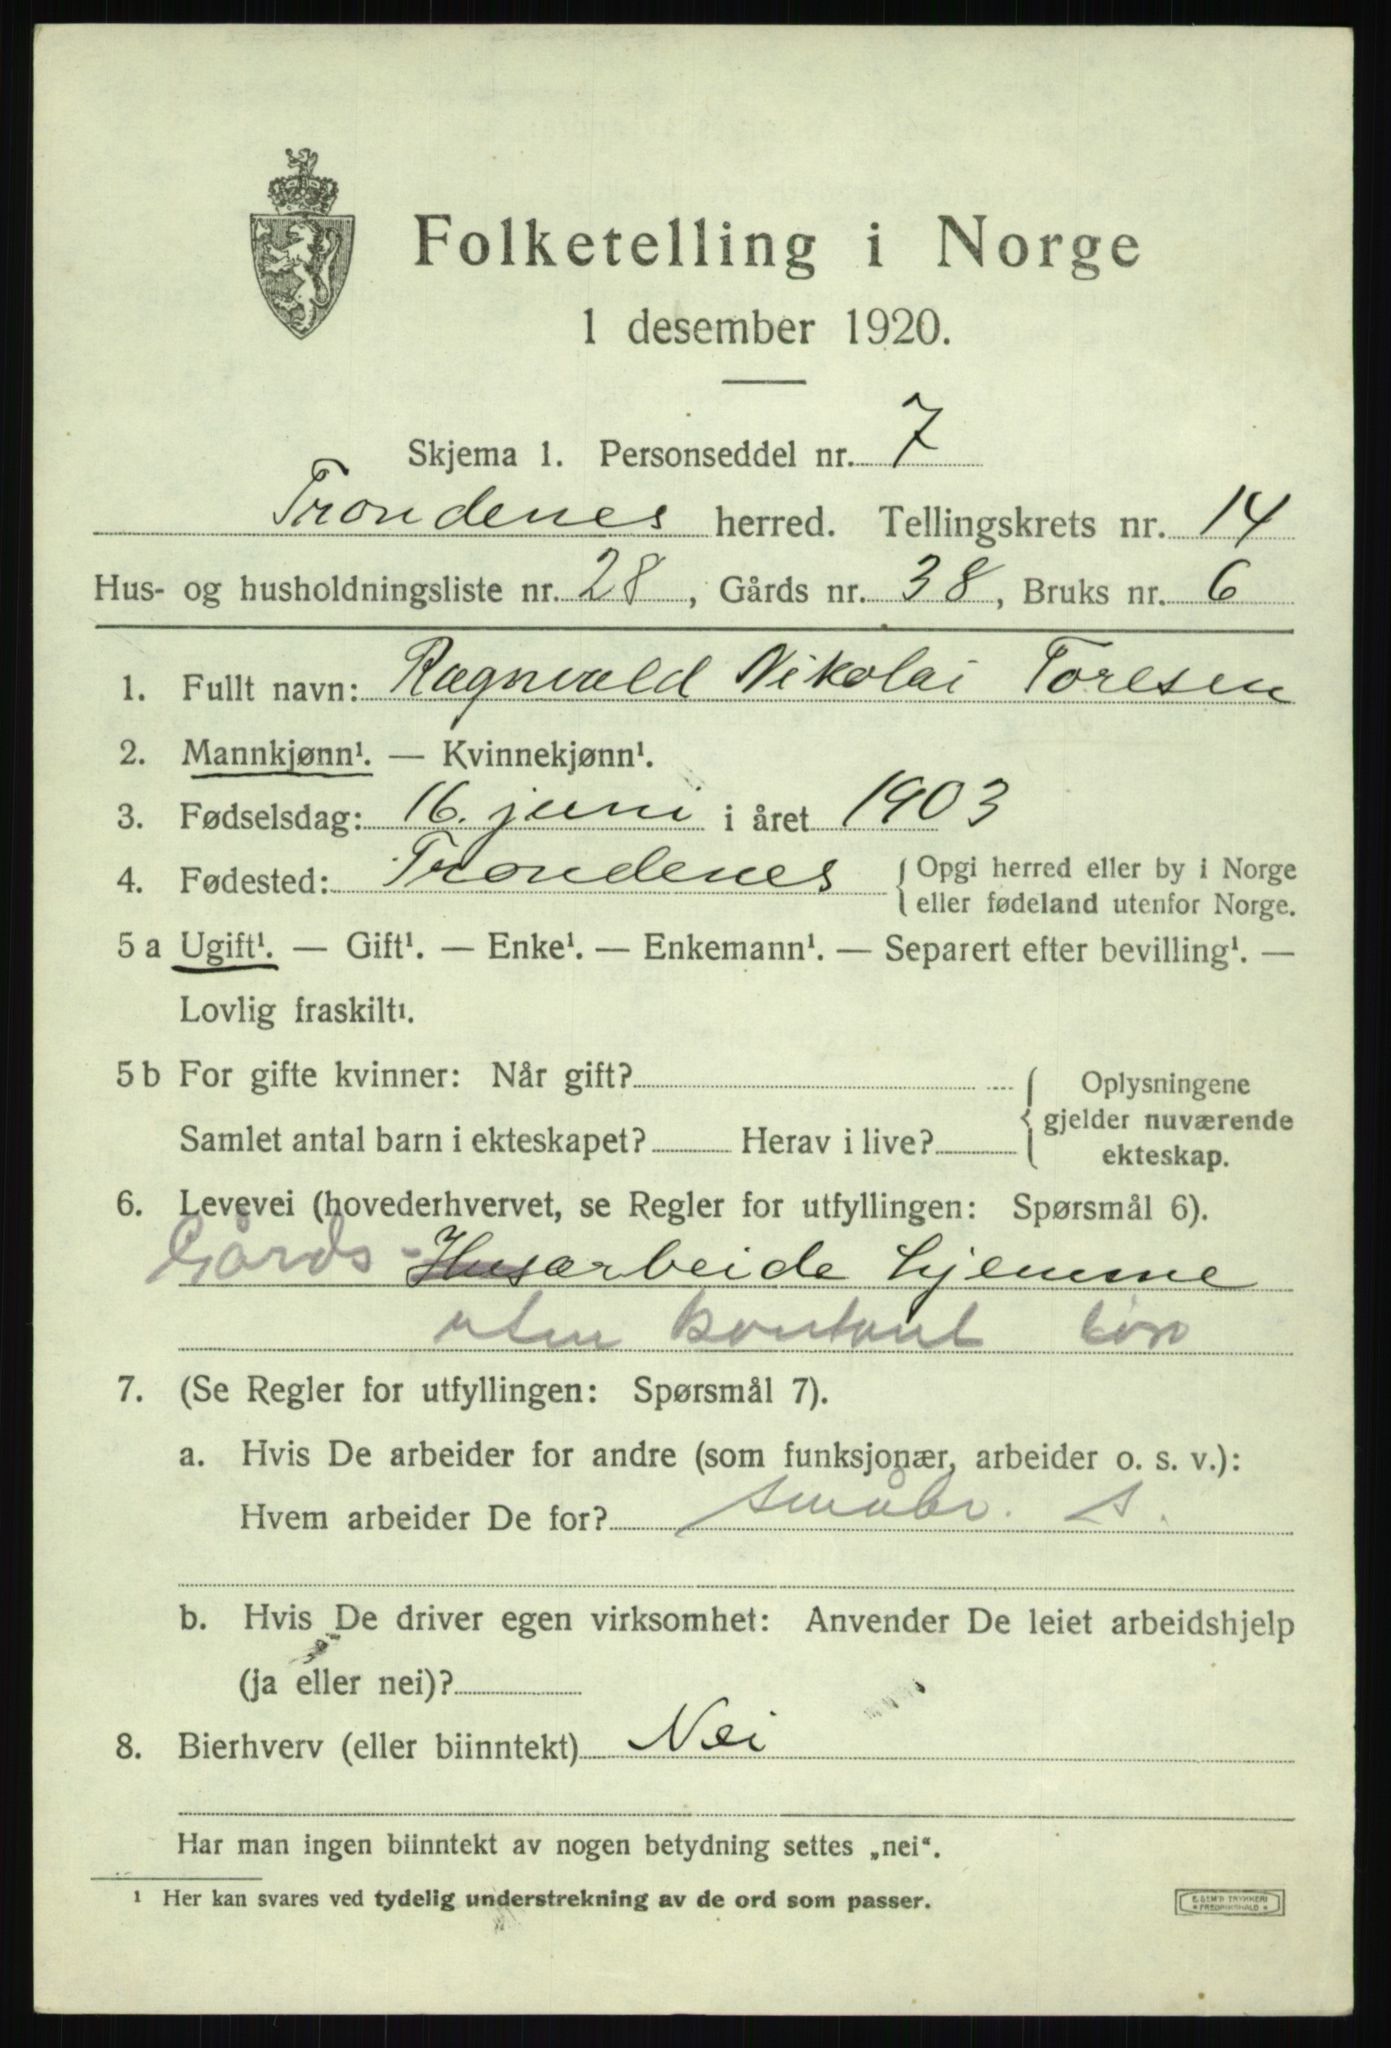 Folketelling i Norge
1 desember 1920.
Skjema 1. Personseddel nr. 7
Trondenes herred. Tellingskrets nr. 14
Hus- og husholdningsliste nr. 28, Gårds nr. 38, Bruks nr. 6
1. Fullt navn: Ragnvald Nikolai Toresen
2. Mannkjønn¹. — Kvinnekjønn¹.
3. Fødselsdag: 16. juni i året 1903
4. Fødested: Trondenes { Opgi herred eller by i Norge
eller fødeland utenfor Norge.
5 a Ugift¹. — Gift¹. — Enke¹. — Enkemann¹. — Separert efter bevilling¹. —
Lovlig fraskilt¹.
5 b For gifte kvinner: Når gift?
Samlet antal barn i ekteskapet? Herav i live?
{ Oplysningene
gjelder nuværende
ekteskap.
6. Levevei (hovederhvervet, se Regler for utfyllingen: Spørsmål 6).
Gårds- Husarbeide hjemme
uten kontant løn
7. (Se Regler for utfyllingen: Spørsmål 7).
a. Hvis De arbeider for andre (som funksjonær, arbeider o. s. v.):
Hvem arbeider De for? småbr. s.
b. Hvis De driver egen virksomhet: Anvender De leiet arbeidshjelp
(ja eller nei)?
8. Bierhverv (eller biinntekt) Nei
Har man ingen biinntekt av nogen betydning settes „nei“.
¹ Her kan svares ved tydelig understrekning av de ord som passer.
E. SEM'S TRYKKERI
* FREDRIKSHALD *